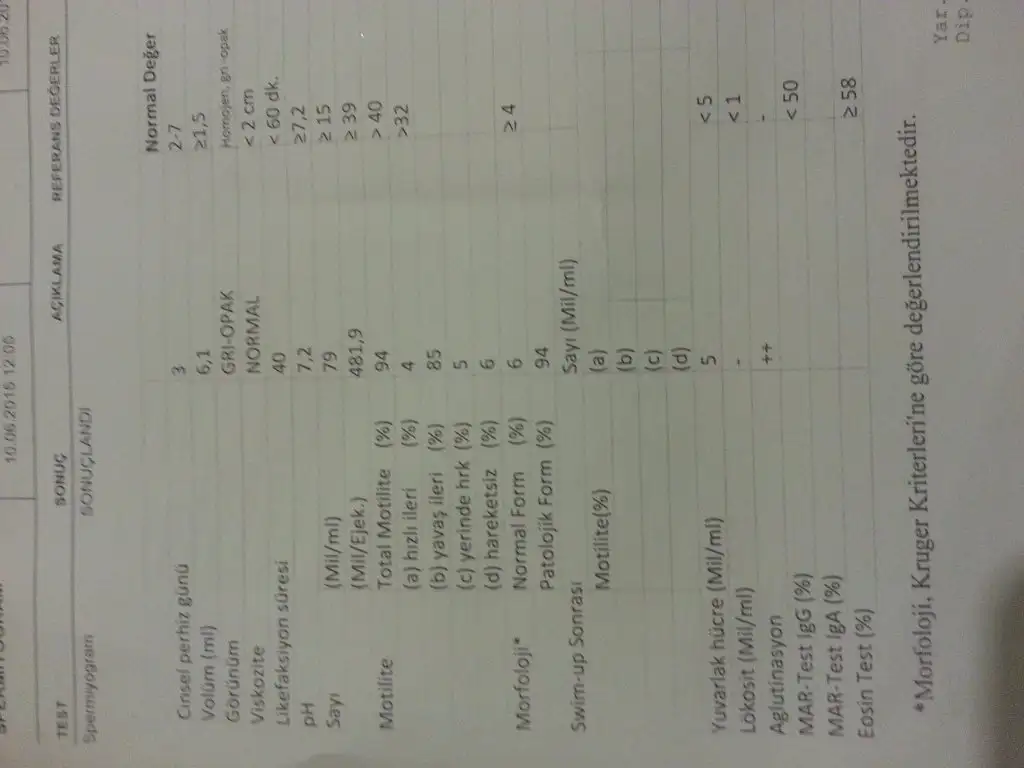 10.06.2016 12:06
TEST SONUÇ AÇIKLAMA REFERANS DEĞERLER
Spermiyogram SONUÇLANDI
Normal Değer
Cinsel perhiz günü 3 2-7
Volüm (ml) 6,1 ≥1,5
Görünüm GRI-OPAK Homojen, gri-opak
Viskozite NORMAL < 2 cm
Likefaksiyon süresi 40 < 60 dk.
pH 7,2 ≥7,2
Sayı (Mil/ml) 79 ≥ 15
(Mil/Ejek.) 481,9 ≥ 39
Motilite Total Motilite (%) 94 > 40
(a) hızlı ileri (%) 4 >32
(b) yavaş ileri (%) 85
(c) yerinde hrk (%) 5
(d) hareketsiz (%) 6
Morfoloji* Normal Form (%) 6 ≥ 4
Patolojik Form (%) 94
Swim-up Sonrası Sayı (Mil/ml)
Motilite(%) (a)
(b)
(c)
(d)
Yuvarlak hücre (Mil/ml) 5 < 5
Lökosit (Mil/ml) - < 1
Aglutinasyon ++ -
MAR-Test IgG (%) < 50
MAR-Test IgA (%)
Eosin Test (%) ≥ 58
*Morfoloji, Kruger Kriterleri'ne göre değerlendirilmektedir.
Yar.
Dip.